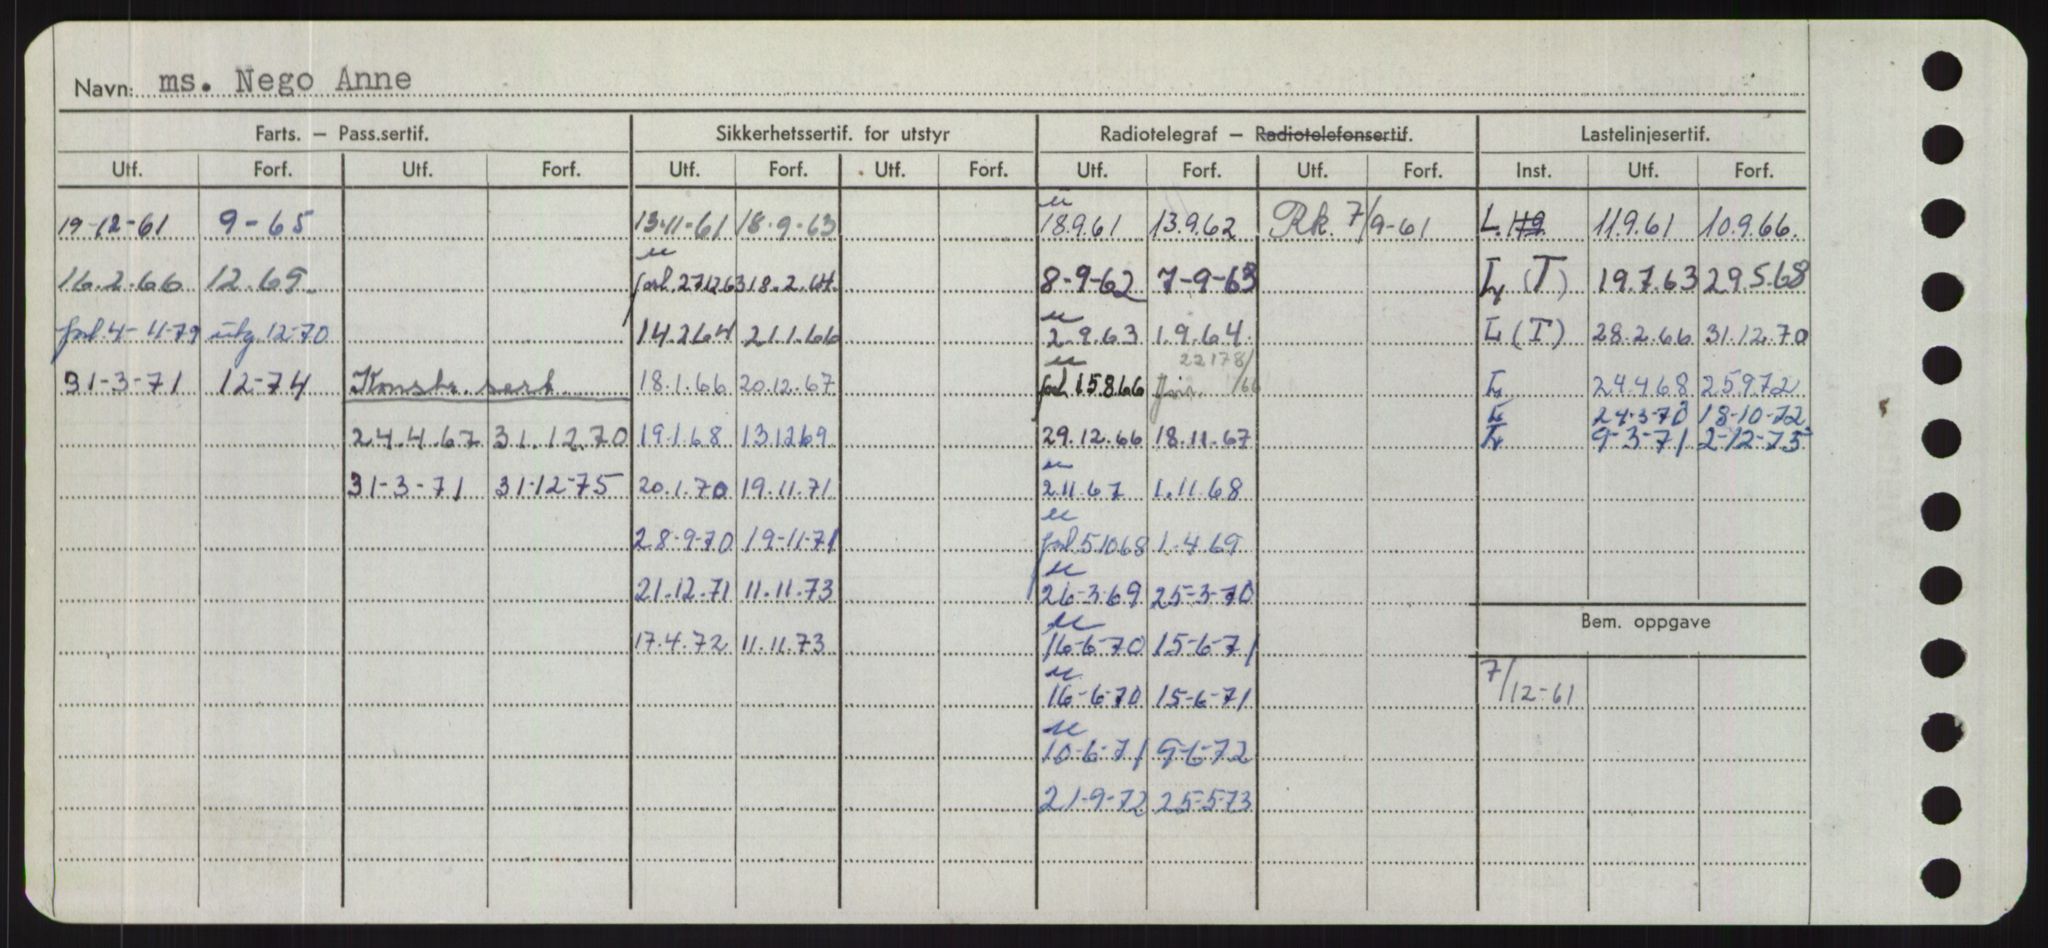 Navn: ms. Nego Anne
Farts. – Pass.sertif. Sikkerhetssertif. for utstyr Radiotelegraf – Radiotelefonsertif. Lastelinjesertif.
Utf. Forf. Utf. Forf. Utf. Forf. Utf. Forf. Utf. Forf. Utf. Forf. Inst. Utf. Forf.
19-12-61 9-65 13-11-61 18.9-63 18.9.61 13.9.62 Rk. 7/9-61 L. 11.9.61 10.9.66.
16.2.66 12.69. forl. 27.12.63 18.2.64 8-9-62 7-9-63 L (T) 19.7.63 29.5.68
forl. 4-11-79 utg. 12-70 14.2.64 21.1.66 2.9.63 1.9.64. L (T) 28.2.66 31.12.70
22178/66
31-3-71 12-74 Konstr. sert. 18.1.66 20.12.67 forl. 15.8.66 L 24.4.68 25.9.72
L 24-3-70 18-10-72
24.4.67 31.12.70 19.1.68 13.12.69 29.12.66 18.11.67 L 9-3-71 2-12-75
31-3-71 31-12-75 20.1.70 19.11.71 2.11.67 1.11.68
28-9-70 19-11-71 forl. 5.10.68 1.4.69
21.12.71 11.11.73 26-3-69 25-3-70
Bem. oppgave
17.4.72 11.11.73 16-6-70 15-6-71
7/12-61
16-6-70 15-6-71
10-6-71 9-6-72
21-9-72 25-5-73